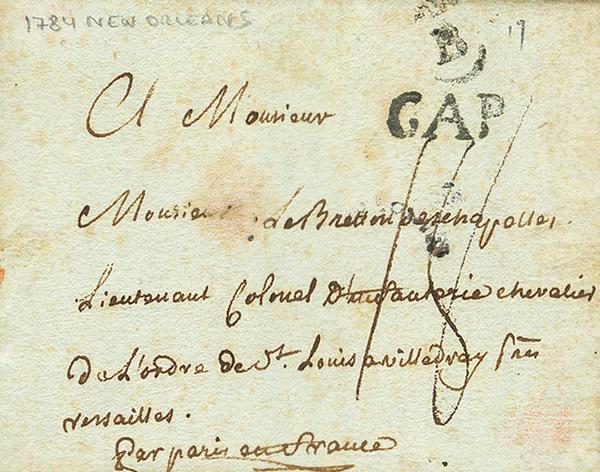 1784 NEW ORLEANS
B
CAP
A Monsieur
18
Monsieur Le Bretton Deschapelles
Lieutenant Colonel D'infanterie chevalier
De L'ordre de St. Louis a villedvray près
versailles.
Par paris en France